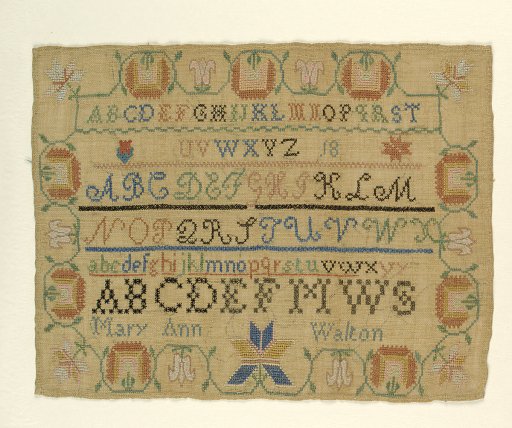 ABCDEFGHIJKLMNOPQRST
UVWXYZ 18
ABCDEFGHIKLM
NOPQRSTUVWX
abcdefghijklmnopqrstuvwxyz
ABCDEFMWS
Mary Ann Walton